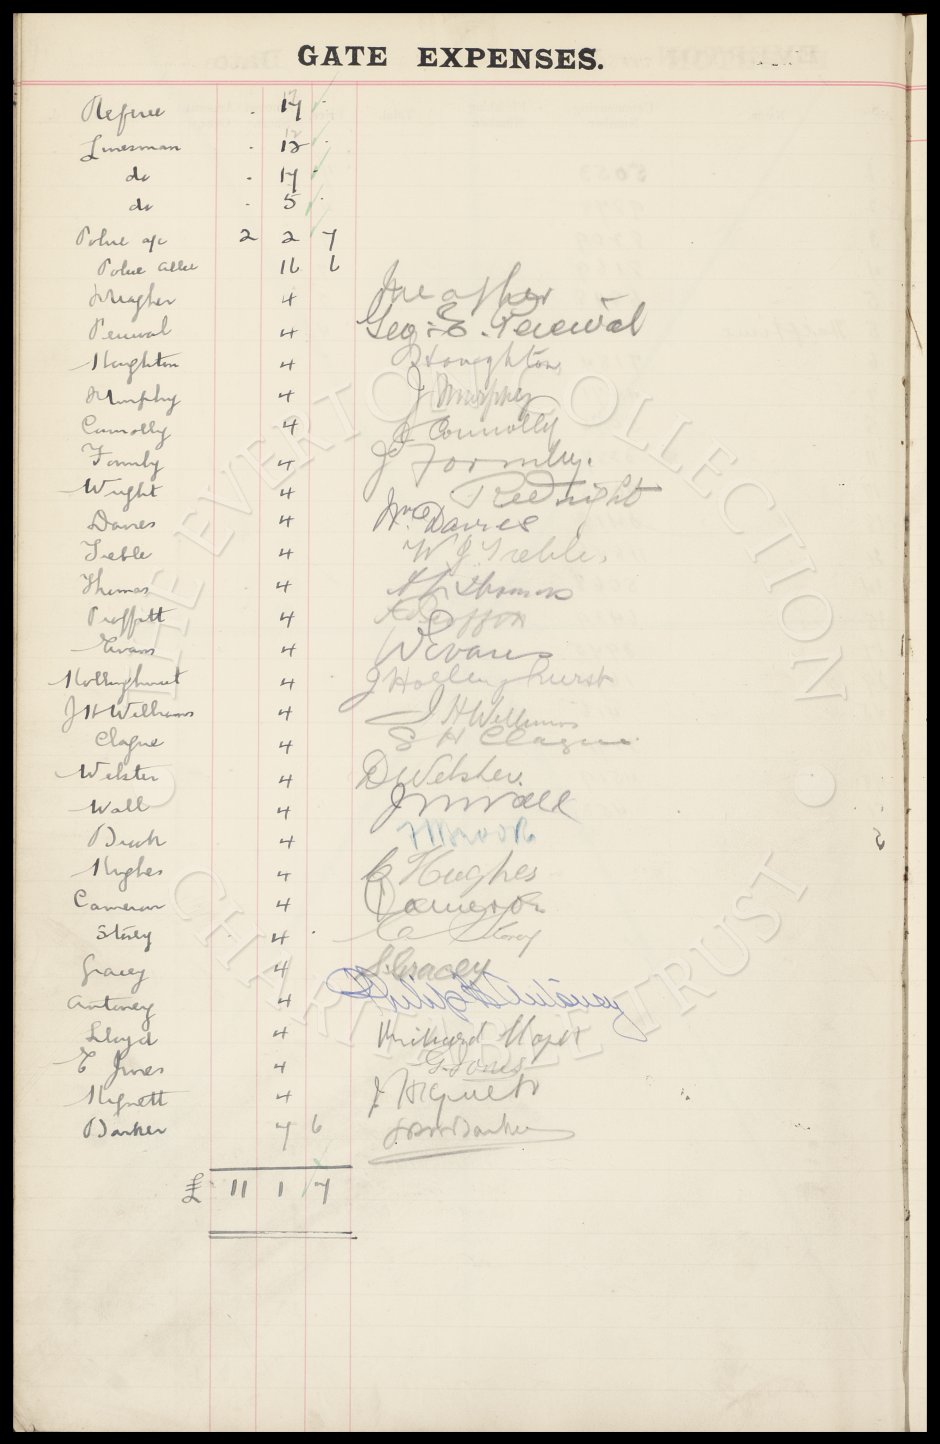 GATE EXPENSES.
Referee . 17 .
Linesman . 12 .
do . 17 .
do . 5 .
Police a/c 2 2 7
Police allce 16 6
Meagher 4 Meagher
Percival 4 Geo. E. Percival
Houghton 4 Houghton
Murphy 4 J Murphy
Connolly 4 J Connolly
Formby 4 J Formby.
Wright 4 Wright
Davies 4 Wm Davies
Treble 4 W J Treble.
Thomas 4 Thomas
Proffitt 4
Evans 4 W Evans
Hollinghurst 4 J Hollinghurst
J H Williams 4 J H Williams
Clague 4 S H Clague
Webster 4 D Webster.
Wall 4 J M Wall
Brook 4 Brook
Hughes 4 C Hughes
Cameron 4 Cameron
Storey 4 . C Storey
Gracey 4 S. Gracey
Antoney 4 Philip Antoney
Lloyd 4 Lloyd
E Jones 4 G Jones
Hignett 4 J. Hignett
Barker 7 6 Barker
£ 11 1 7
THE EVERTON COLLECTION CHARITABLE TRUST